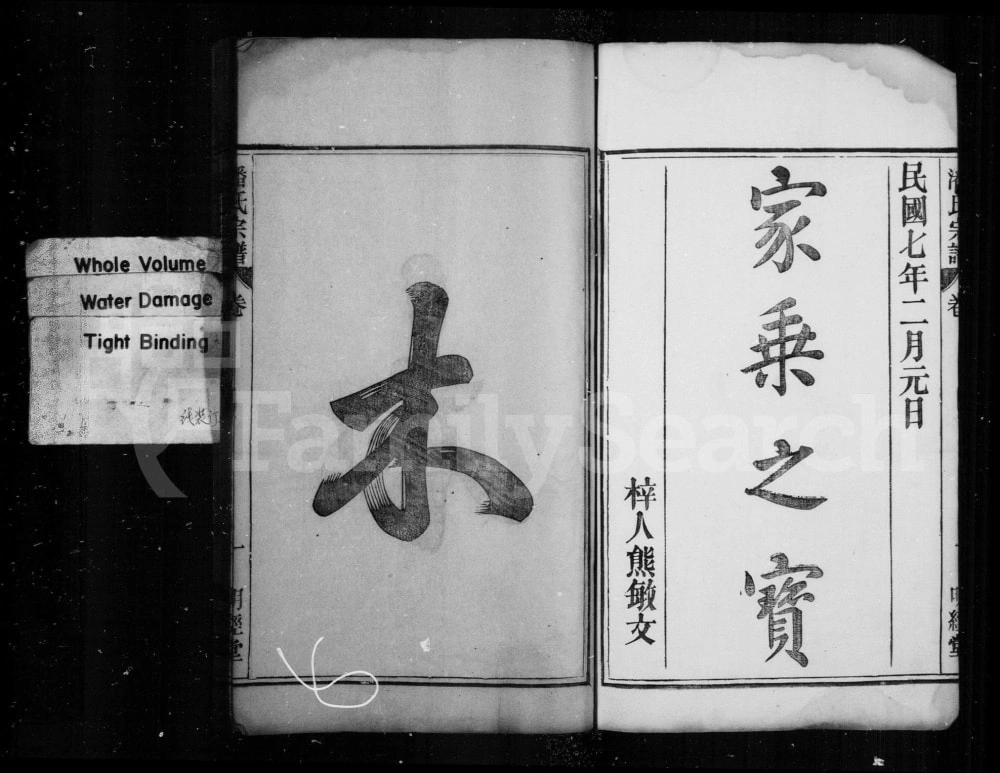 民國七年二月元日
家乘之寶
梓人熊敏文
潘氏宗譜 卷 一 明經堂
木
潘氏宗譜 卷 一 明經堂
Whole Volume
Water Damage
Tight Binding
线装订
FamilySearch